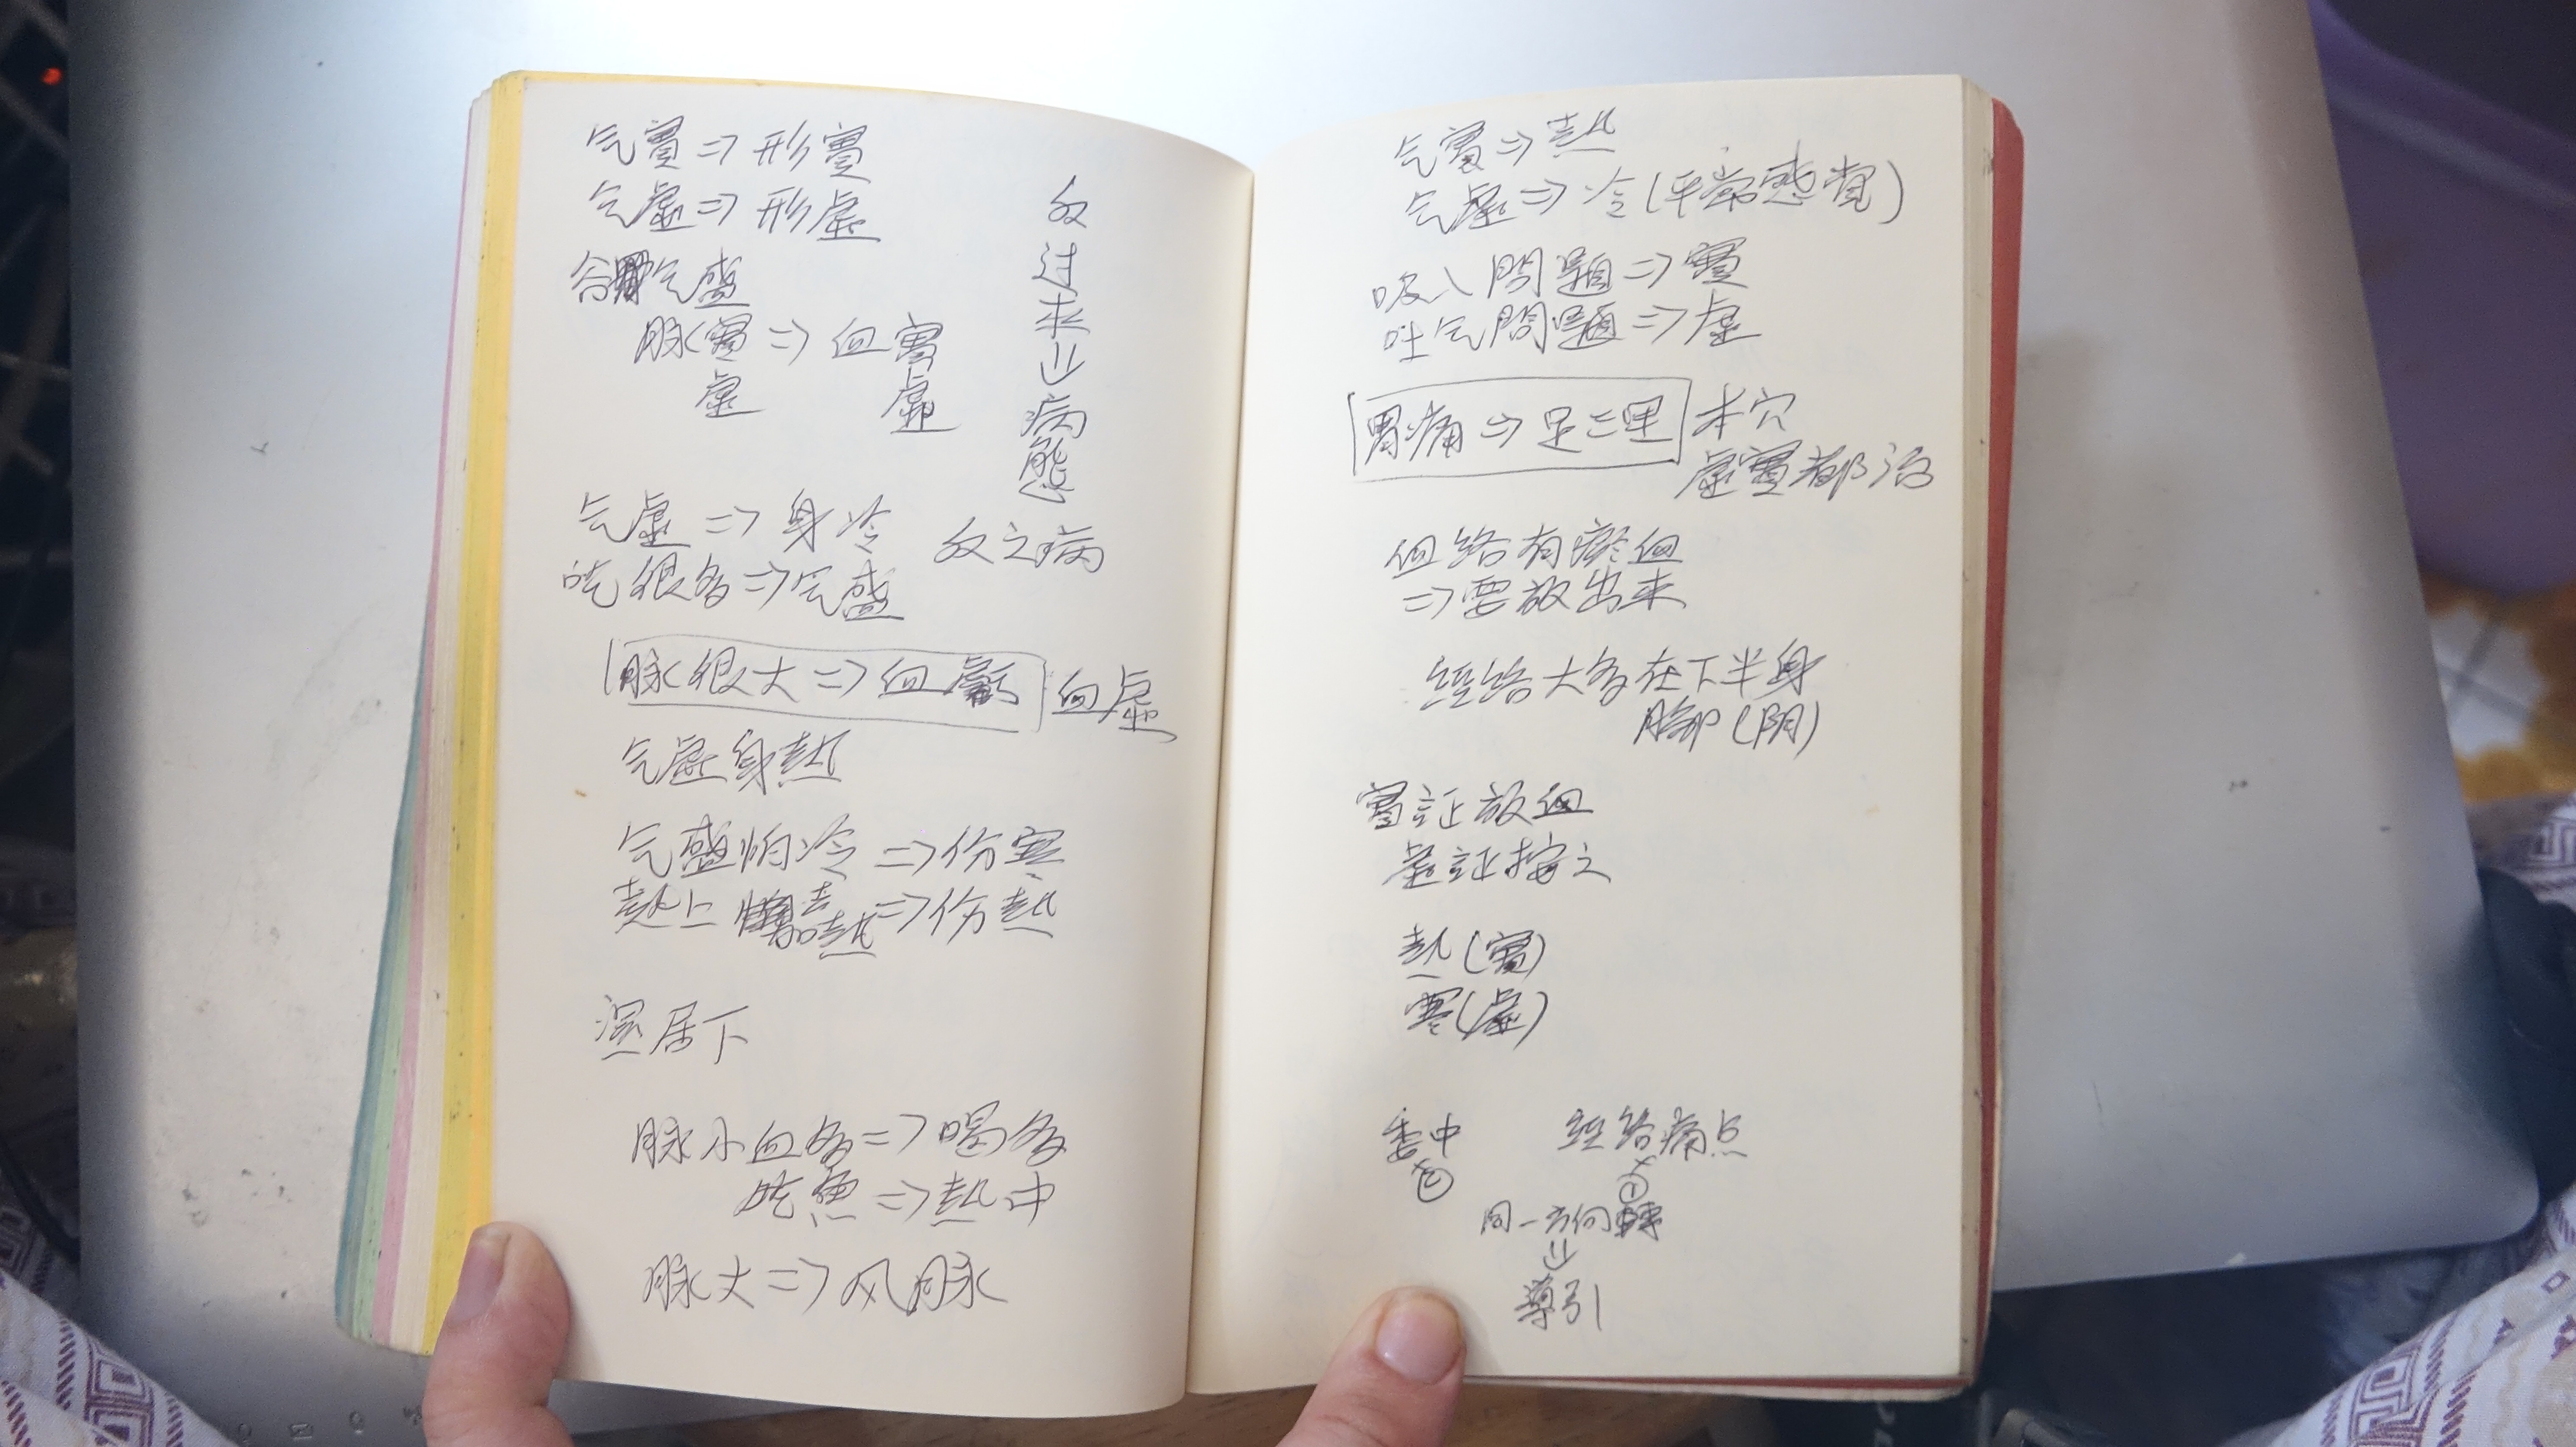 气實⇒形實
气虛⇒形虛
谷气盛
脉實⇒血實
虛 虛
反过来⇒病態
气虛⇒身冷 反之病
吃很多⇒气盛
脉很大⇒血虧 血虛
气虛身熱
气盛怕冷⇒伤寒
熱上加熱⇒伤熱
濕居下
脉小血多⇒喝多
吃魚⇒熱中
脉大⇒风脉
气實⇒熱
气虛⇒冷(平常感覺)
吸入問題⇒實
吐气問題⇒虛
胃痛⇒足三里 本穴
虛實都治
血絡有瘀血
⇒要放出来
經絡大多在下半身
胸部(阴)
實証放血
虛証按之
熱(實)
寒(虛)
委中 經絡痛点
同一方向轉
⇓
導引